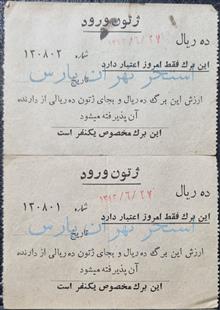 ژتون ورود
ده ریال
۱۳۱۲/۶/۲۷
شماره ۱۳۰۸۰۲
این برگ فقط امروز اعتبار دارد
تاریخ
استخر تهران پارس
ارزش این برگ ده ریال و بجای ژتون ده ریالی از دارنده
آن پذیرفته میشود
این برگ مخصوص یکنفر است
ژتون ورود
ده ریال
۱۳۱۲/۶/۲۷
شماره ۱۳۰۸۰۱
این برگ فقط امروز اعتبار دارد
تاریخ
استخر تهران پارس
ارزش این برگ ده ریال و بجای ژتون ده ریالی از دارنده
آن پذیرفته میشود
این برگ مخصوص یکنفر است